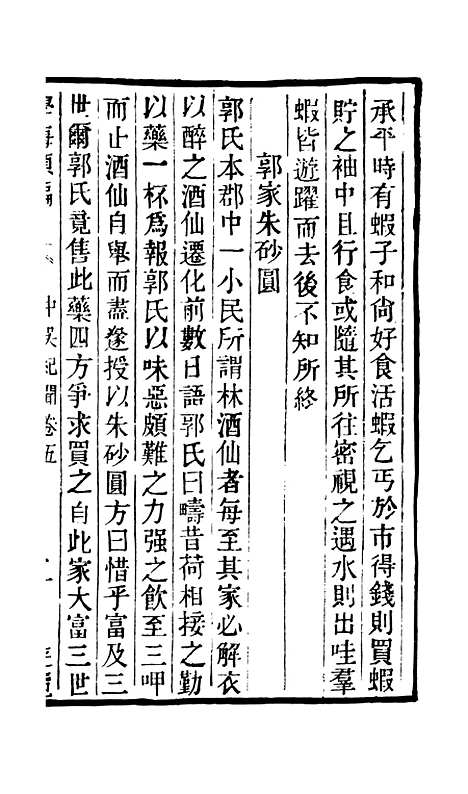 承平時有蝦子和尙好食活蝦乞丐於市得錢則買蝦
貯之袖中且行食或隨其所往密視之遇水則出哇羣
蝦皆遊躍而去後不知所終
郭家朱砂圓
郭氏本郡中一小民所謂林酒仙者每至其家必解衣
以醉之酒仙遷化前數日語郭氏曰疇昔荷相接之勤
以藥一杯爲報郭氏以味惡頗難之力强之飮至三呷
而止酒仙自舉而盡遂授以朱砂圓方曰惜乎富及三
世爾郭氏竟售此藥四方爭求買之自此家大富三世
中吳紀聞卷五